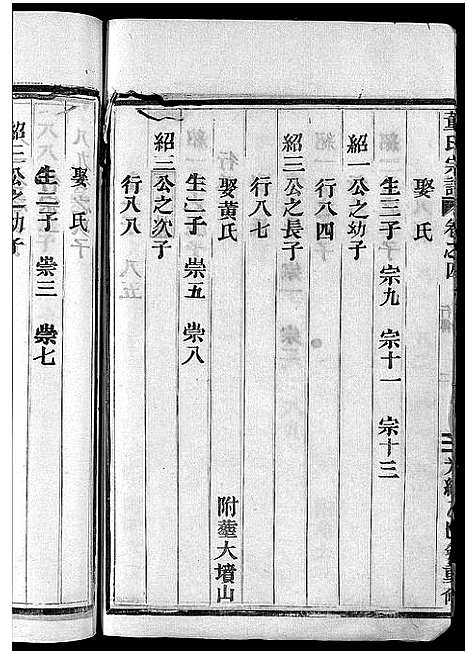 董氏宗譜 卷之四
娶 氏
生三子 宗九 宗十一 宗十三
紹一公之幼子
行八四
紹三公之長子
行八七
娶黃氏 附塟大墳山
生二子 崇五 崇八
紹三公之次子
行八八
娶 氏
生二子 崇三 崇七
紹三公之幼子